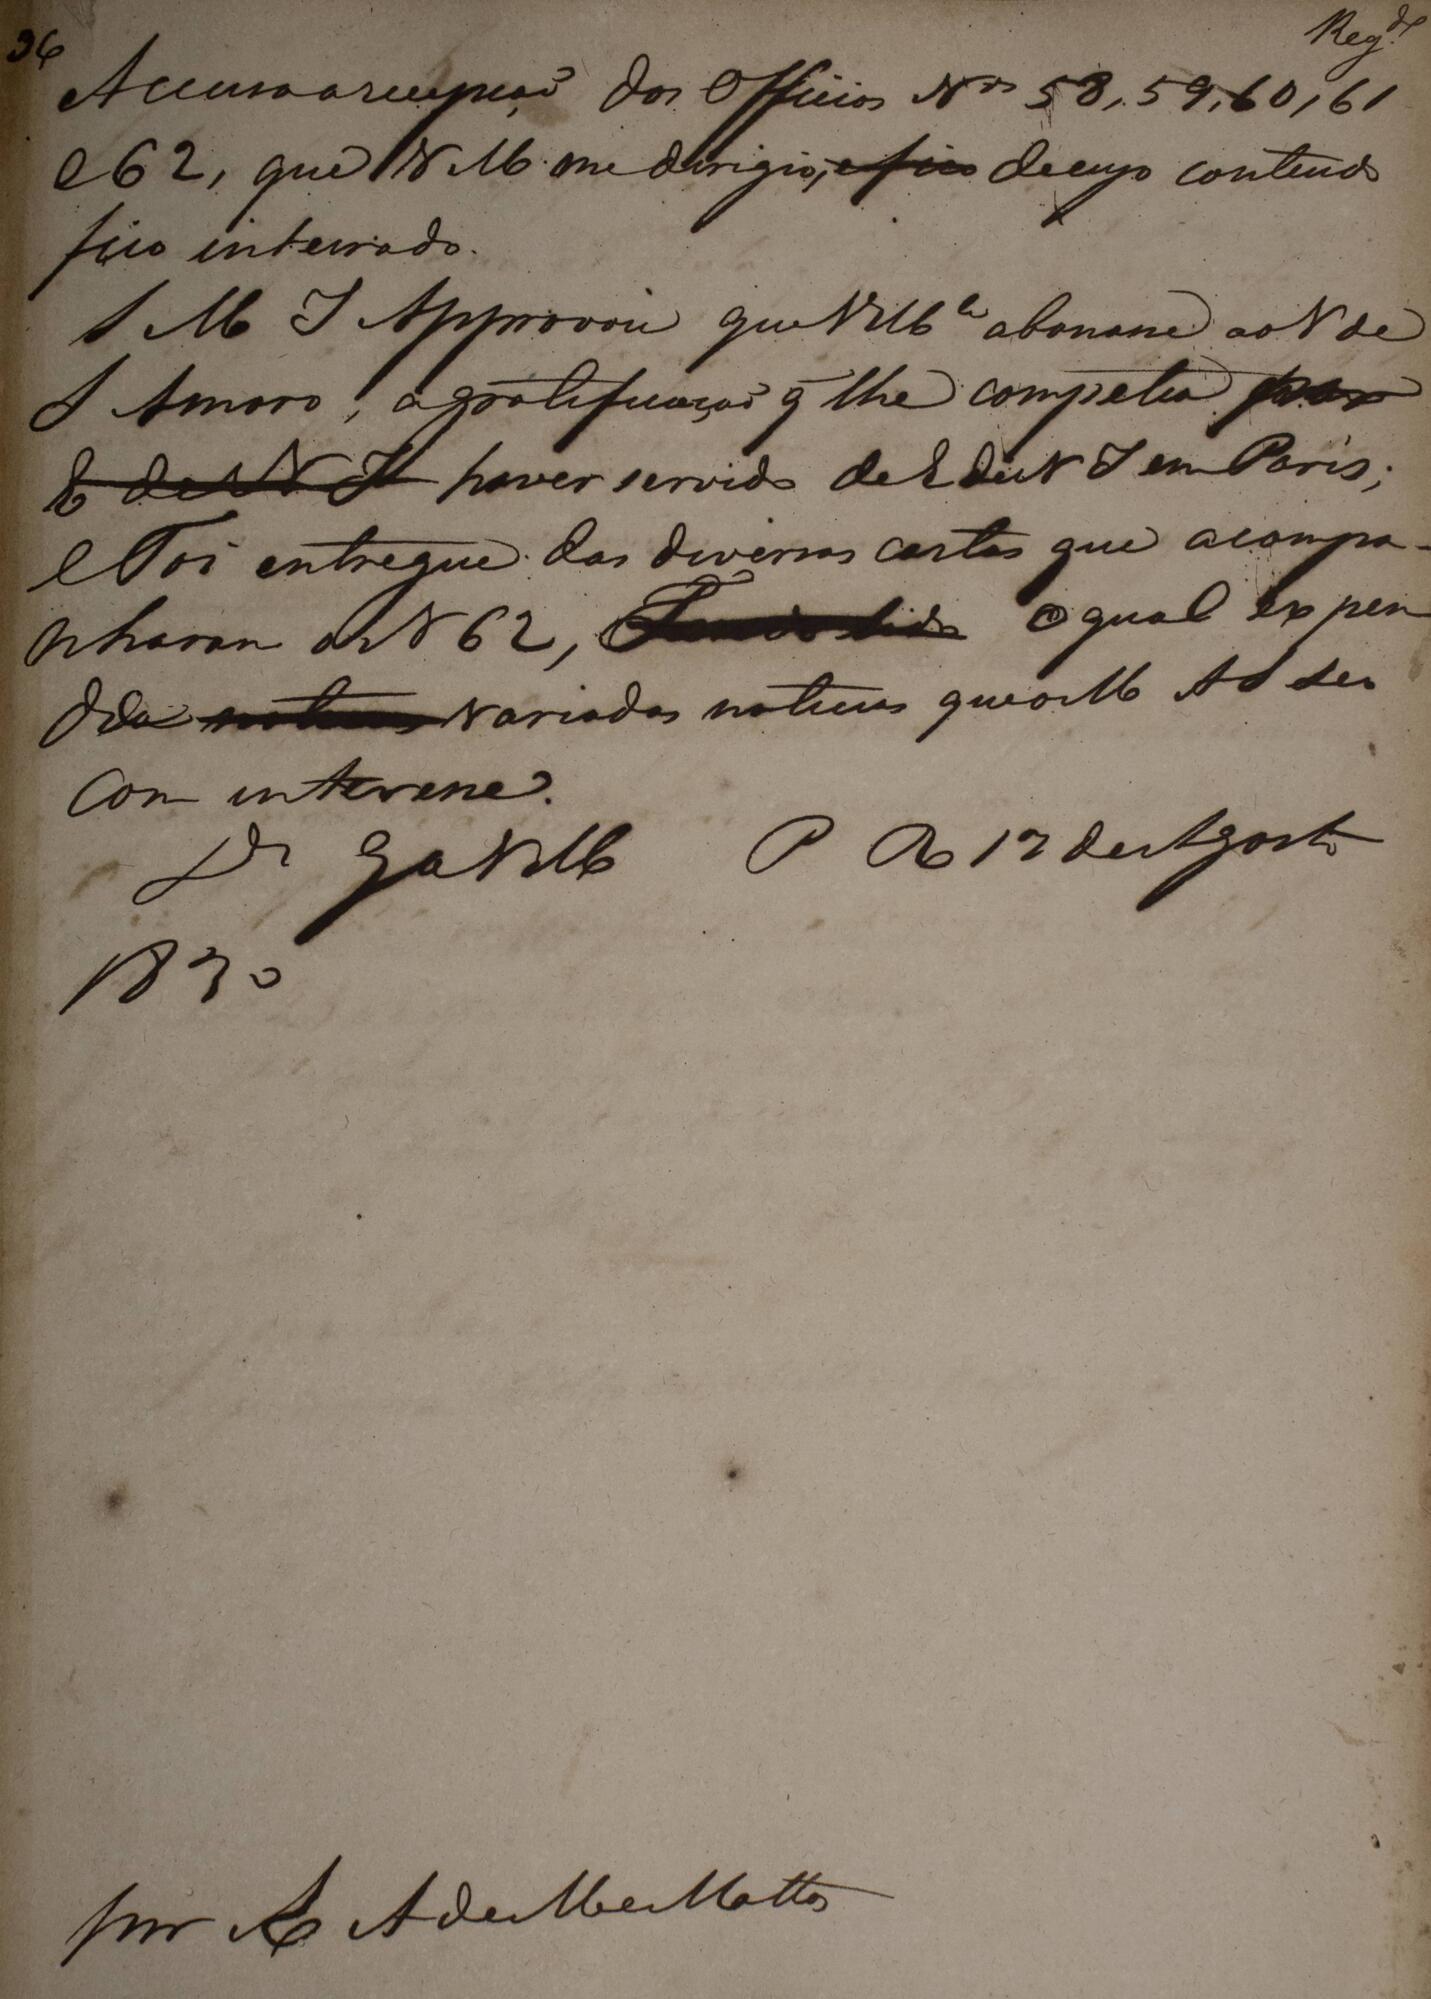 36
Reg.do
Accuso a recepção dos Officios Nos 58, 59, 60, 61
e 62, que V M me dirigio, e fico de cujo contendo
fico inteirado.
S M I Approvou que V M ce abonasse ao V de
S Amaro, a gratificação q̃ lhe competia por
E de N I haver servido de E de N I em Paris;
e Foi entregue das diversas cartas que acompa-
nharam o N 62, Tendo lido o qual expen
dia noticias variadas noticias que o M A S leu
com interesse.
Ds Ge a V M P R 17 de Agosto
1830
por A A de M e Mattos